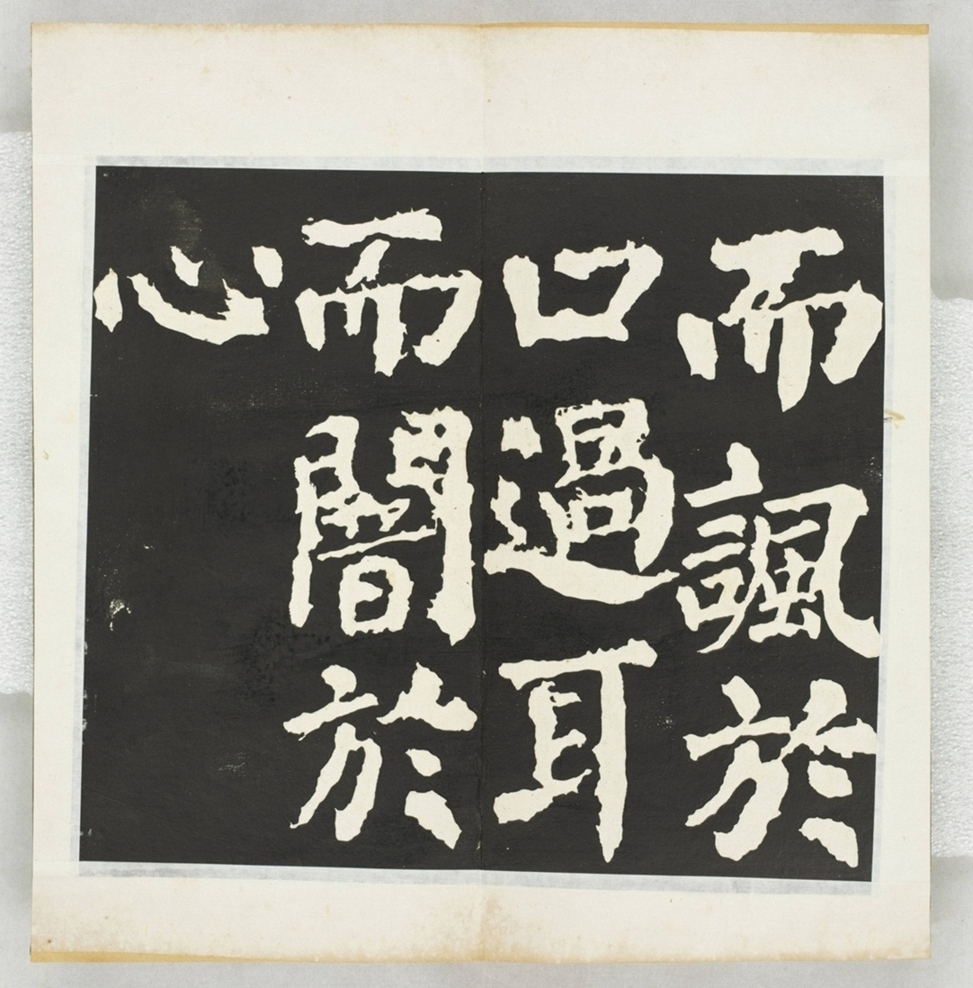 而諷於
口過耳
而闇於
心